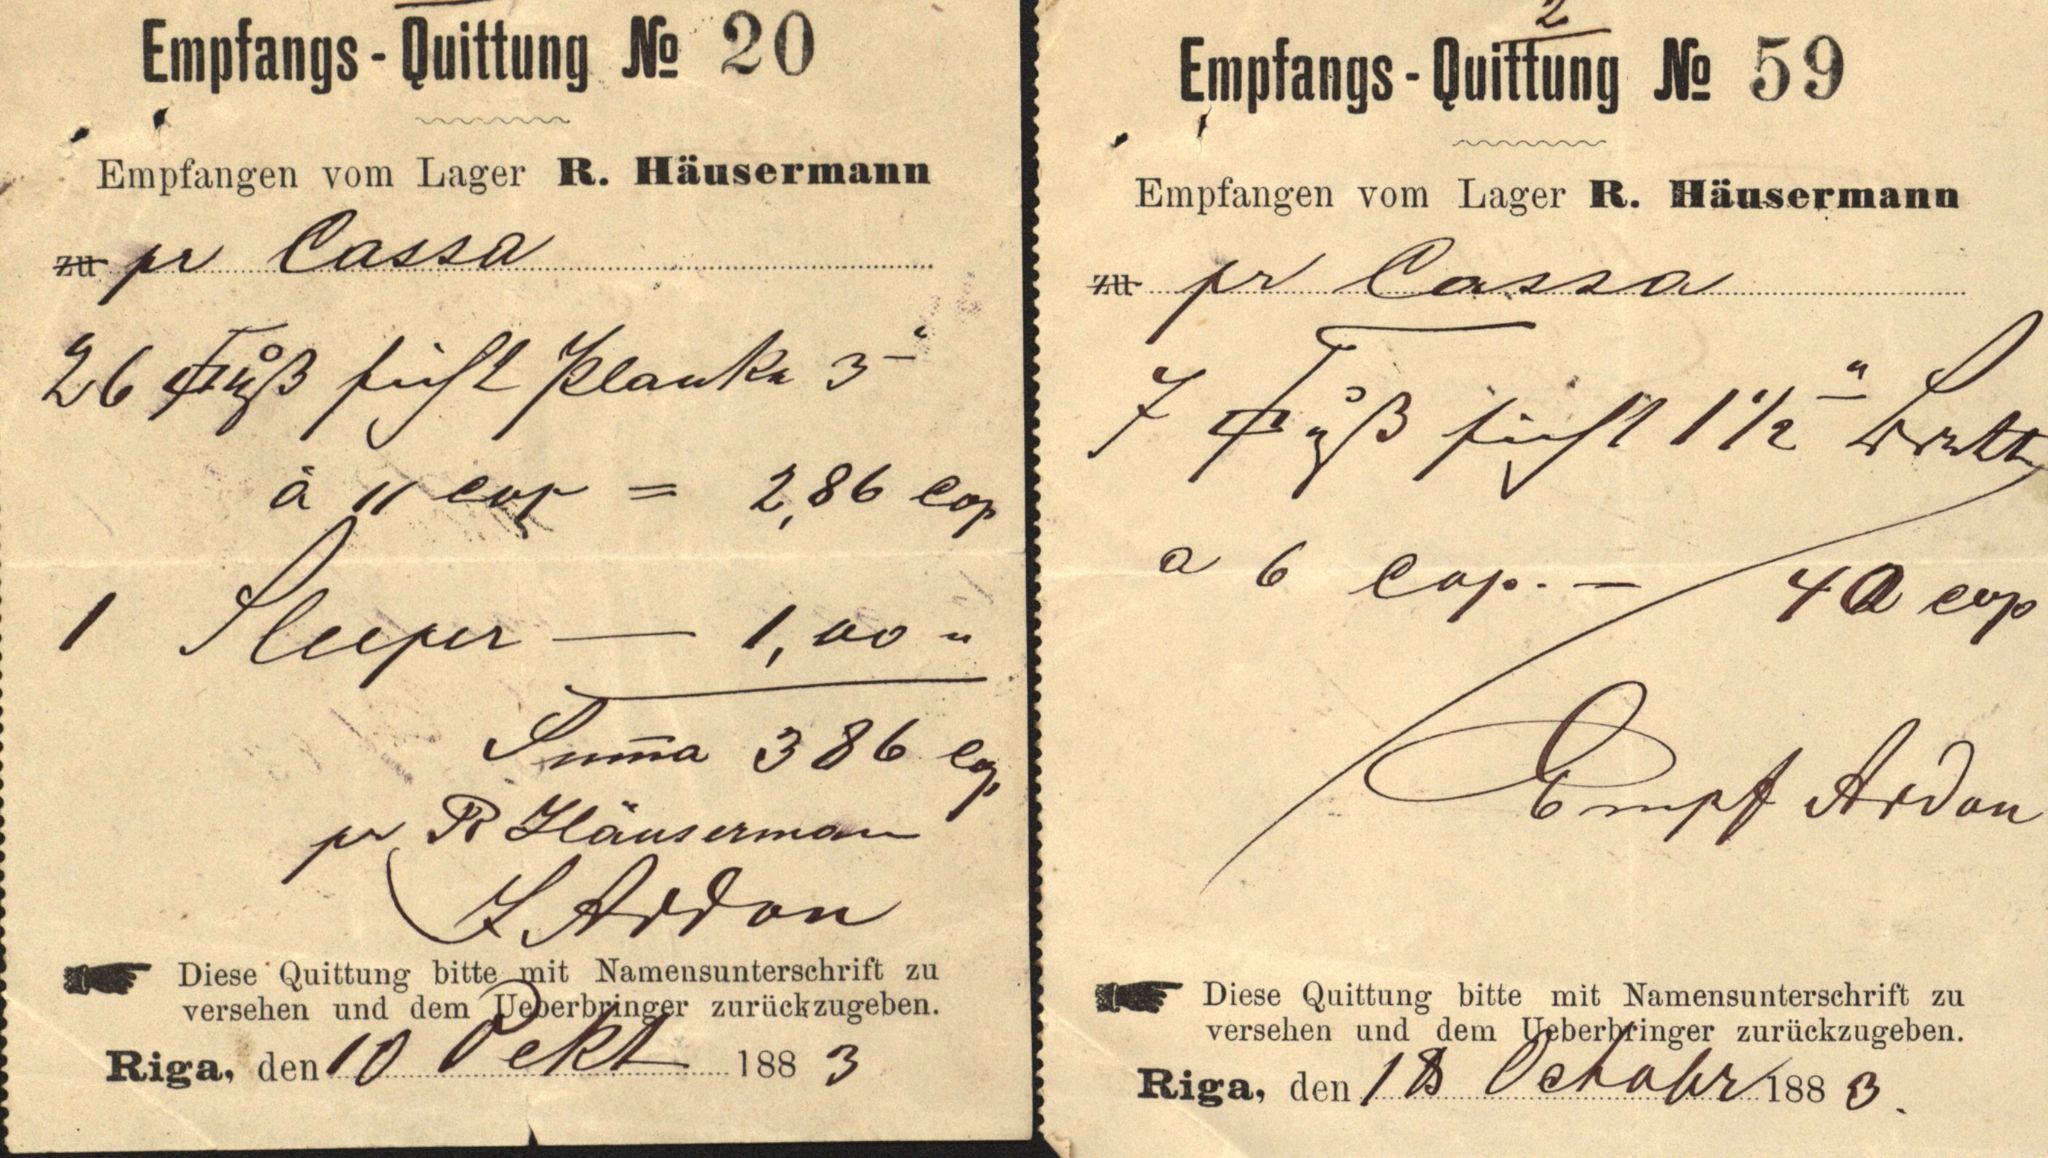 Empfangs-Quittung № 20
Empfangen vom Lager R. Häusermann
zu pr Cassa
26 Fuß Planke 3"
à 11 cop = 2,86 Cop
1 Sleeper — 1,00 "
Summa 3 86 Cop
pr R Häusermann
J Ardon
Diese Quittung bitte mit Namensunterschrift zu
versehen und dem Ueberbringer zurückzugeben.
Riga, den 10 Oekt 1883
2
Empfangs-Quittung № 59
Empfangen vom Lager R. Häusermann
zu pr Cassa
7 Fuß 1 1/2"
a 6 Cop. — cop
Empf Ardon
Diese Quittung bitte mit Namensunterschrift zu
versehen und dem Ueberbringer zurückzugeben.
Riga, den 18 Octobr 1883.